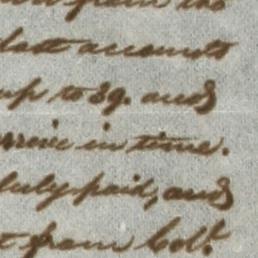 from the
last accounts
up to 39. and
arrive in time.
duly paid, and
t from Col.t